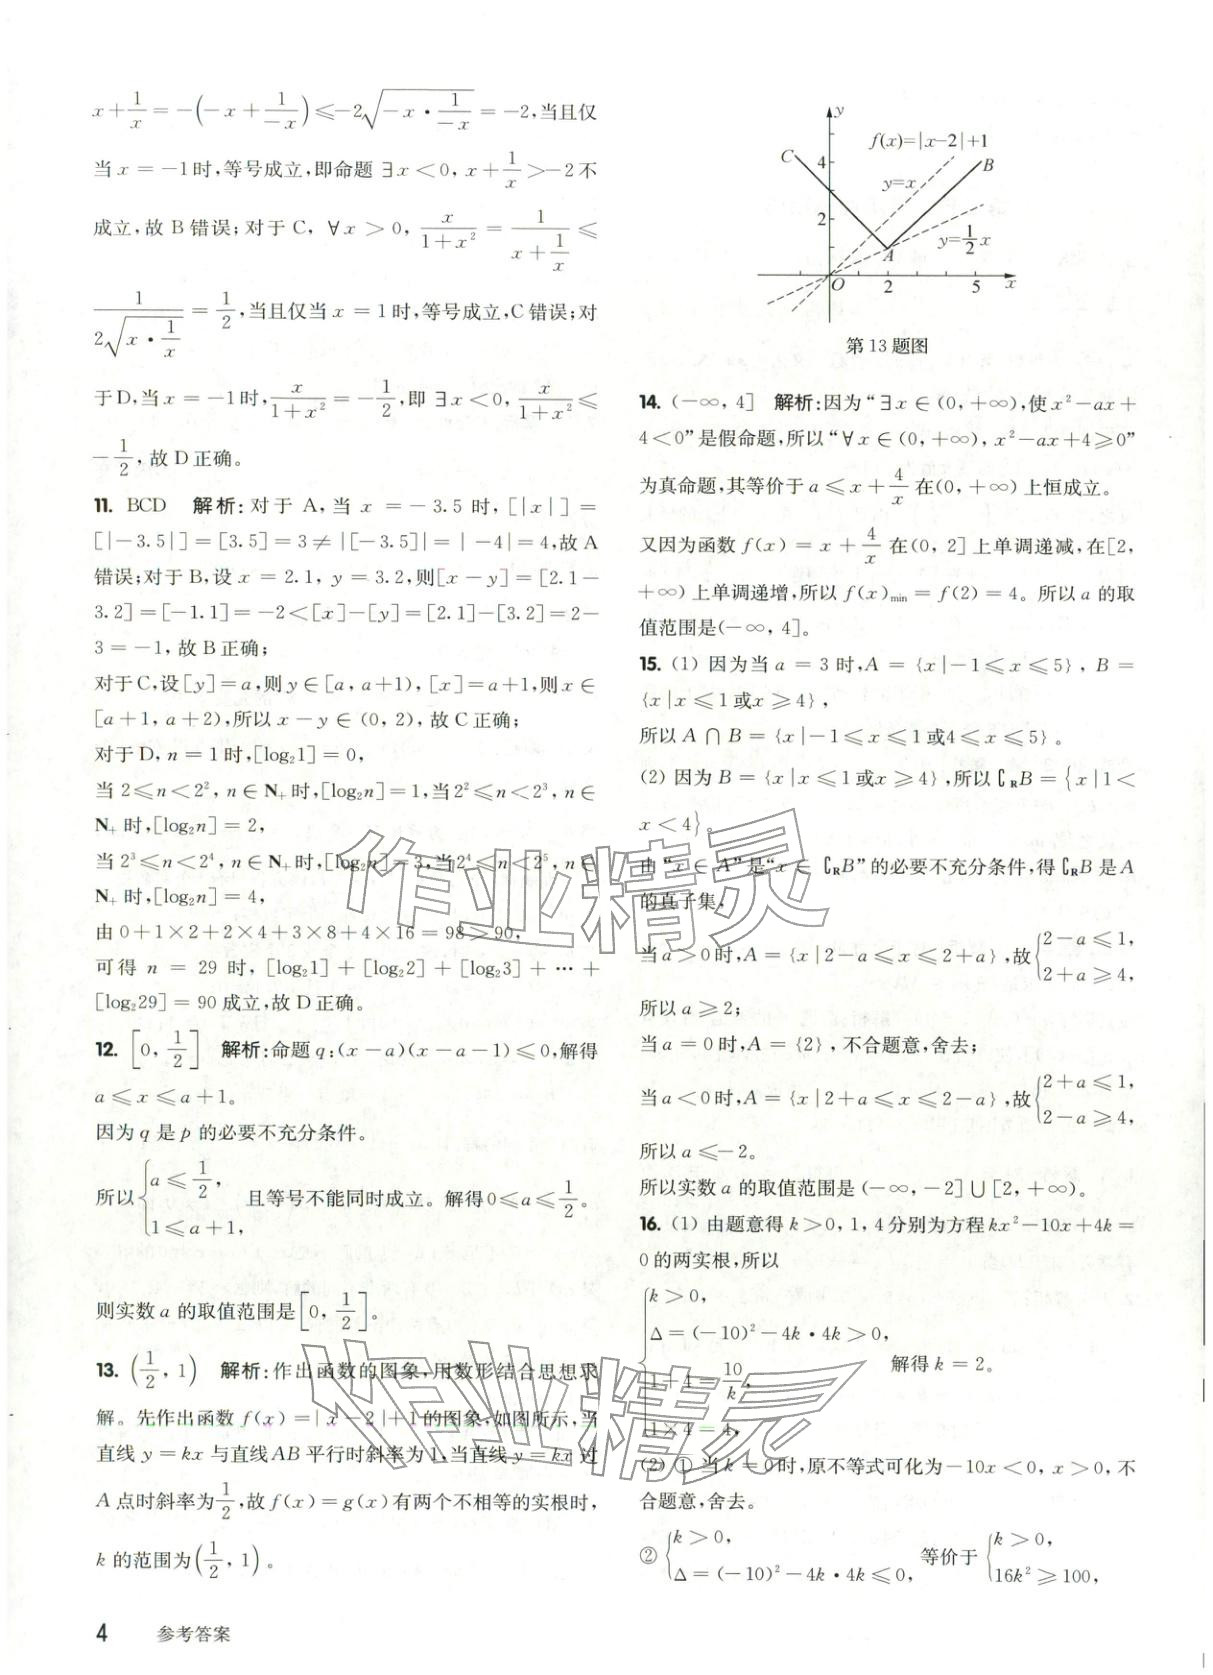 x+1/x=-(-x+1/(-x))≤-2√(-x·1/(-x))=-2,当且仅
当 x=-1时,等号成立,即命题 ∃x<0, x+1/x>-2不
成立,故 B 错误;对于 C, ∀x>0, x/(1+x²)=1/(x+1/x)≤
1/(2√(x·1/x))=1/2,当且仅当 x=1时,等号成立,C错误;对
于D,当 x=-1时, x/(1+x²)=-1/2,即 ∃x<0, x/(1+x²)≤
-1/2, 故 D 正确。
11. BCD 解析:对于 A, 当 x=-3.5 时, [|x|]=
[|-3.5|]=[3.5]=3≠|[-3.5]|=|-4|=4,故 A
错误;对于 B,设 x=2.1, y=3.2,则[x-y]=[2.1-
3.2]=[-1.1]=-2<[x]-[y]=[2.1]-[3.2]=2-
3=-1, 故 B 正确;
对于C,设[y]=a,则 y∈[a, a+1), [x]=a+1,则 x∈
[a+1, a+2),所以 x-y∈(0, 2), 故 C 正确;
对于 D, n=1时,[log₂1]=0,
当 2≤n<2², n∈N₊时,[log₂n]=1,当2²≤n<2³, n∈
N₊ 时,[log₂n]=2,
当 2³≤n<2⁴, n∈N₊时,[log₂n]=3,当2⁴≤n<2⁵, n∈
N₊ 时,[log₂n]=4,
由 0+1×2+2×4+3×8+4×16=98>90,
可得 n=29 时, [log₂1]+[log₂2]+[log₂3]+…+
[log₂29]=90 成立,故 D 正确。
12. [0, 1/2] 解析:命题 q:(x-a)(x-a-1)≤0,解得
a≤x≤a+1。
因为 q 是 p 的必要不充分条件。
所以{a≤1/2, 1≤a+1, 且等号不能同时成立。解得0≤a≤1/2。
则实数 a 的取值范围是[0, 1/2]。
13. (1/2, 1) 解析:作出函数的图象,用数形结合思想求
解。先作出函数 f(x)=|x-2|+1的图象,如图所示,当
直线 y=kx 与直线AB平行时斜率为1,当直线 y=kx 过
A 点时斜率为1/2,故 f(x)=g(x)有两个不相等的实根时,
k 的范围为(1/2, 1)。
4 参考答案
y
f(x)=|x-2|+1
C
4
B
y=x
2
y=1/2x
A
O
2
5
x
第13题图
14. (-∞, 4] 解析:因为“∃x∈(0,+∞),使 x²-ax+
4<0”是假命题,所以“∀x∈(0,+∞), x²-ax+4≥0”
为真命题,其等价于 a≤x+4/x 在(0,+∞)上恒成立。
又因为函数 f(x)=x+4/x 在(0, 2]上单调递减,在[2,
+∞)上单调递增,所以 f(x)min=f(2)=4。所以 a 的取
值范围是(-∞, 4]。
15. (1) 因为当 a=3 时,A={x|-1≤x≤5}, B=
{x|x≤1或x≥4},
所以 A∩B={x|-1≤x≤1或4≤x≤5}。
(2) 因为 B={x|x≤1或x≥4},所以 ∁RB={x|1<
x<4}。
由“x∈A”是“x∈∁RB”的必要不充分条件,得∁RB是A
的真子集,
当 a>0时,A={x|2-a≤x≤2+a},故{2-a≤1, 2+a≥4,
所以 a≥2;
当 a=0 时,A={2},不合题意,舍去;
当 a<0时,A={x|2+a≤x≤2-a},故{2+a≤1, 2-a≥4,
所以 a≤-2。
所以实数 a 的取值范围是(-∞,-2]∪[2,+∞)。
16. (1) 由题意得 k>0, 1, 4分别为方程 kx²-10x+4k=
0的两实根,所以
{k>0,
Δ=(-10)²-4k·4k>0,
1+4=10/k, 解得 k=2。
1×4=4,
(2) ① 当 k=0时,原不等式可化为-10x<0, x>0, 不
合题意,舍去。
② {k>0, Δ=(-10)²-4k·4k≤0, 等价于 {k>0, 16k²≥100,
作业精灵
作业精灵